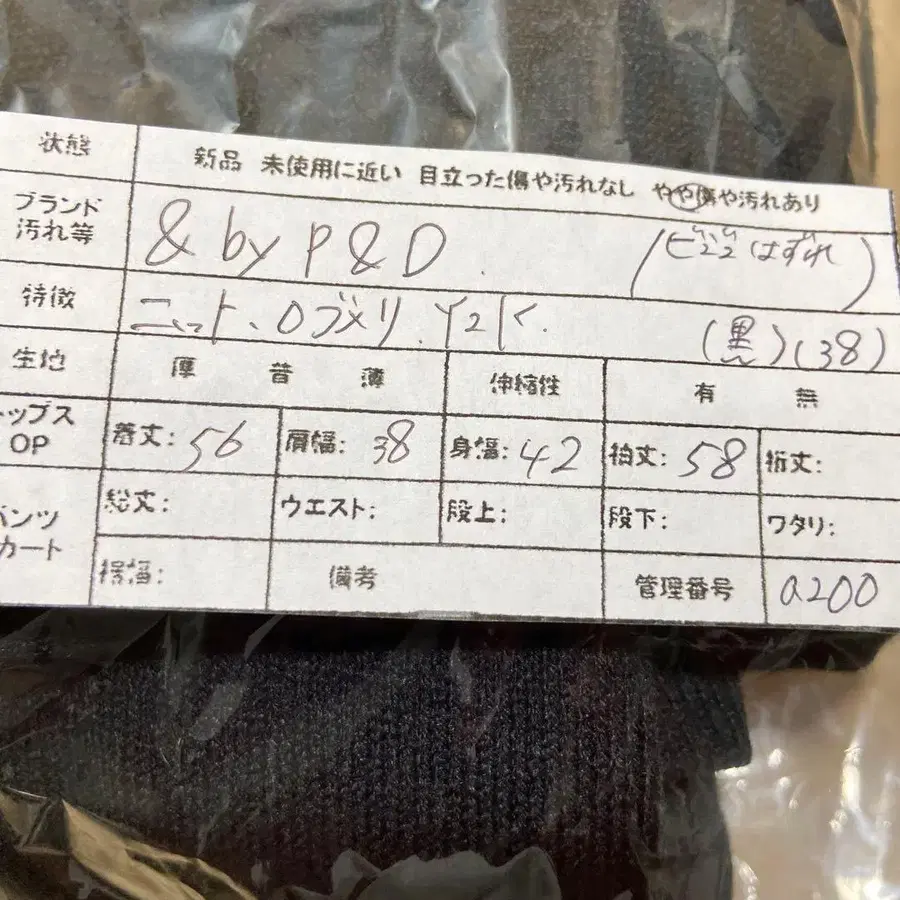 状態 新品 未使用に近い 目立った傷や汚れなし やや傷や汚れあり
ブランド
汚れ等
& by P & D. (ビジュはずれ)
特徴 ニット、ロゴメリ、Y2K. (黒)(38)
生地 厚 普 薄 伸縮性 有 無
トップス
OP
着丈: 56 肩幅: 38 身幅: 42 袖丈: 58 裄丈:
パンツ
カート
総丈: ウエスト: 段上: 段下: ワタリ:
裾幅: 備考 管理番号 a200